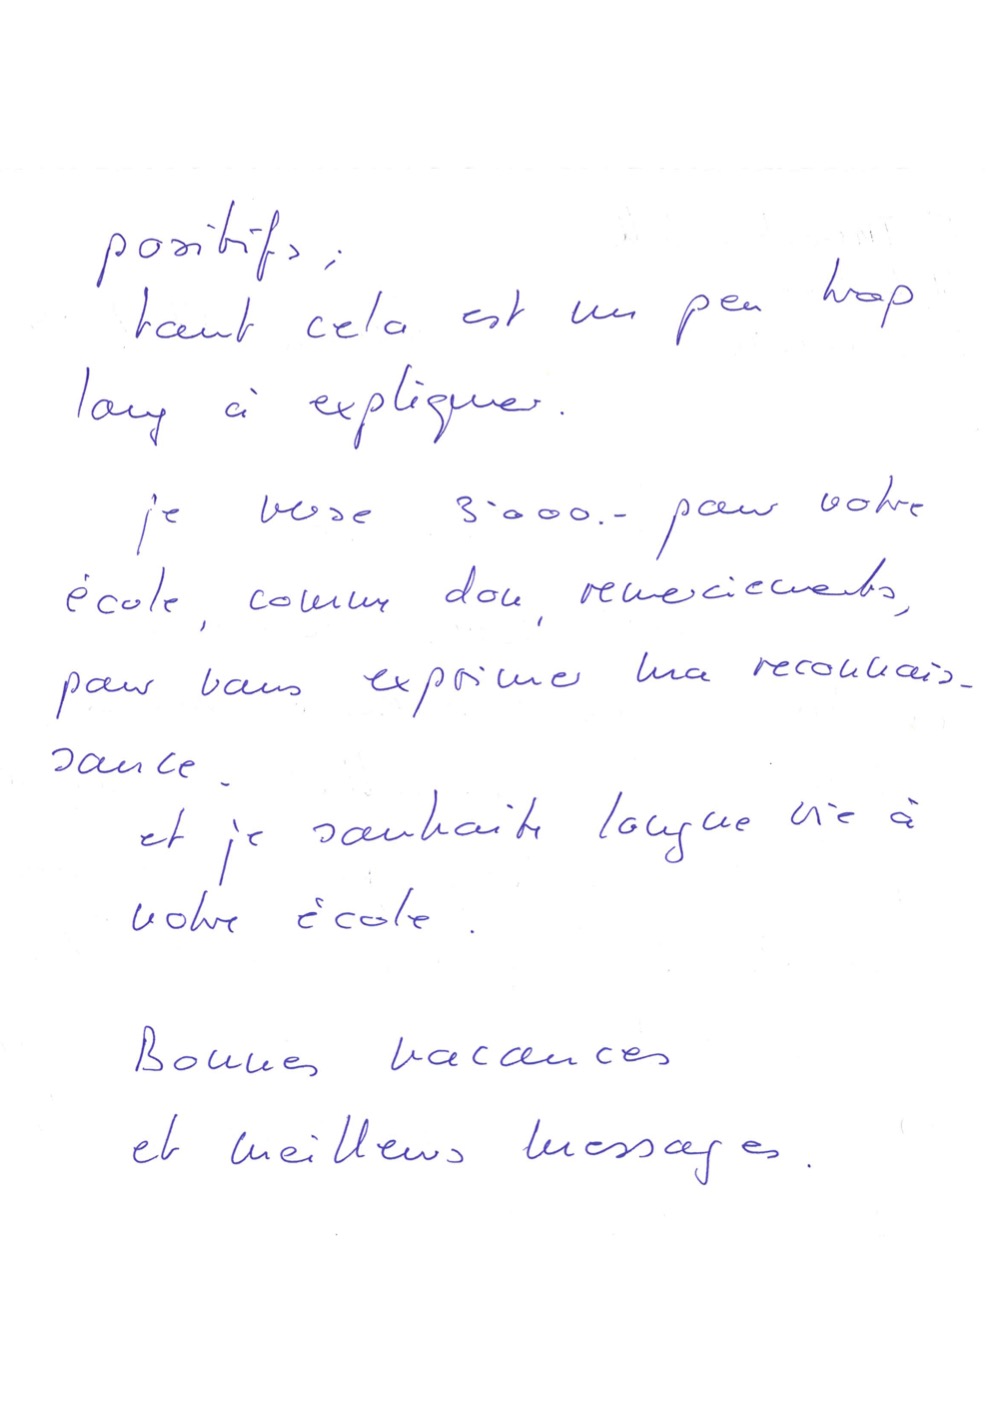 positifs ;
tout cela est un peu trop
long à expliquer.
je verse 3'000.- pour votre
école, comme don, remerciements,
pour vous exprimer ma reconnais-
sance.
et je souhaite longue vie à
votre école.
Bonnes vacances
et meilleurs messages.